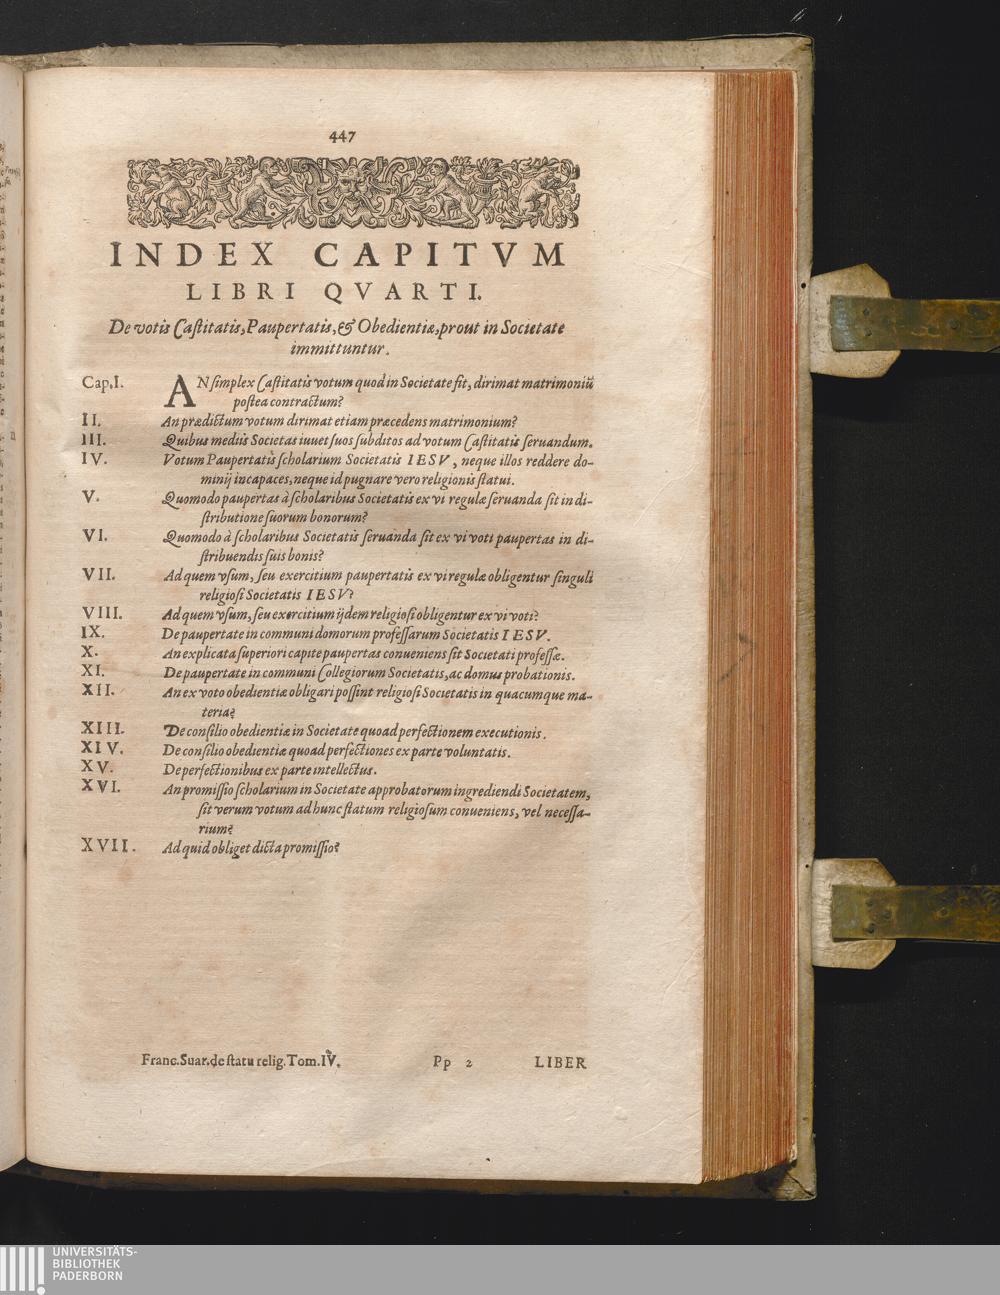 447
INDEX CAPITVM
LIBRI QVARTI.
De votis Castitatis, Paupertatis, & Obedientiæ, prout in Societate
immittuntur.
Cap. I. AN simplex Castitatis votum quod in Societate fit, dirimat matrimoniũ
postea contractum?
II. An prædictum votum dirimat etiam præcedens matrimonium?
III. Quibus mediis Societas iuuet suos subditos ad votum Castitatis seruandum.
IV. Votum Paupertatis scholarium Societatis IESV, neque illos reddere do-
minij incapaces, neque id pugnare vero religionis statui.
V. Quomodo paupertas à scholaribus Societatis ex vi regulæ seruanda sit in di-
stributione suorum bonorum?
VI. Quomodo à scholaribus Societatis seruanda sit ex vi voti paupertas in di-
stribuendis suis bonis?
VII. Ad quem vsum, seu exercitium paupertatis ex vi regulæ obligentur singuli
religiosi Societatis IESV?
VIII. Ad quem vsum, seu exercitium ijdem religiosi obligentur ex vi voti?
IX. De paupertate in communi domorum professarum Societatis IESV.
X. An explicata superiori capite paupertas conueniens sit Societati professæ.
XI. De paupertate in communi Collegiorum Societatis, ac domus probationis.
XII. An ex voto obedientiæ obligari possint religiosi Societatis in quacumque ma-
teria?
XIII. De consilio obedientiæ in Societate quoad perfectionem executionis.
XIV. De consilio obedientiæ quoad perfectiones ex parte voluntatis.
XV. De perfectionibus ex parte intellectus.
XVI. An promissio scholarium in Societate approbatorum ingrediendi Societatem,
sit verum votum ad hunc statum religiosum conueniens, vel necessa-
rium?
XVII. Ad quid obliget dicta promissio?
Franc. Suar. de statu relig. Tom. IV. Pp 2 LIBER
UNIVERSITÄTS-
BIBLIOTHEK
PADERBORN